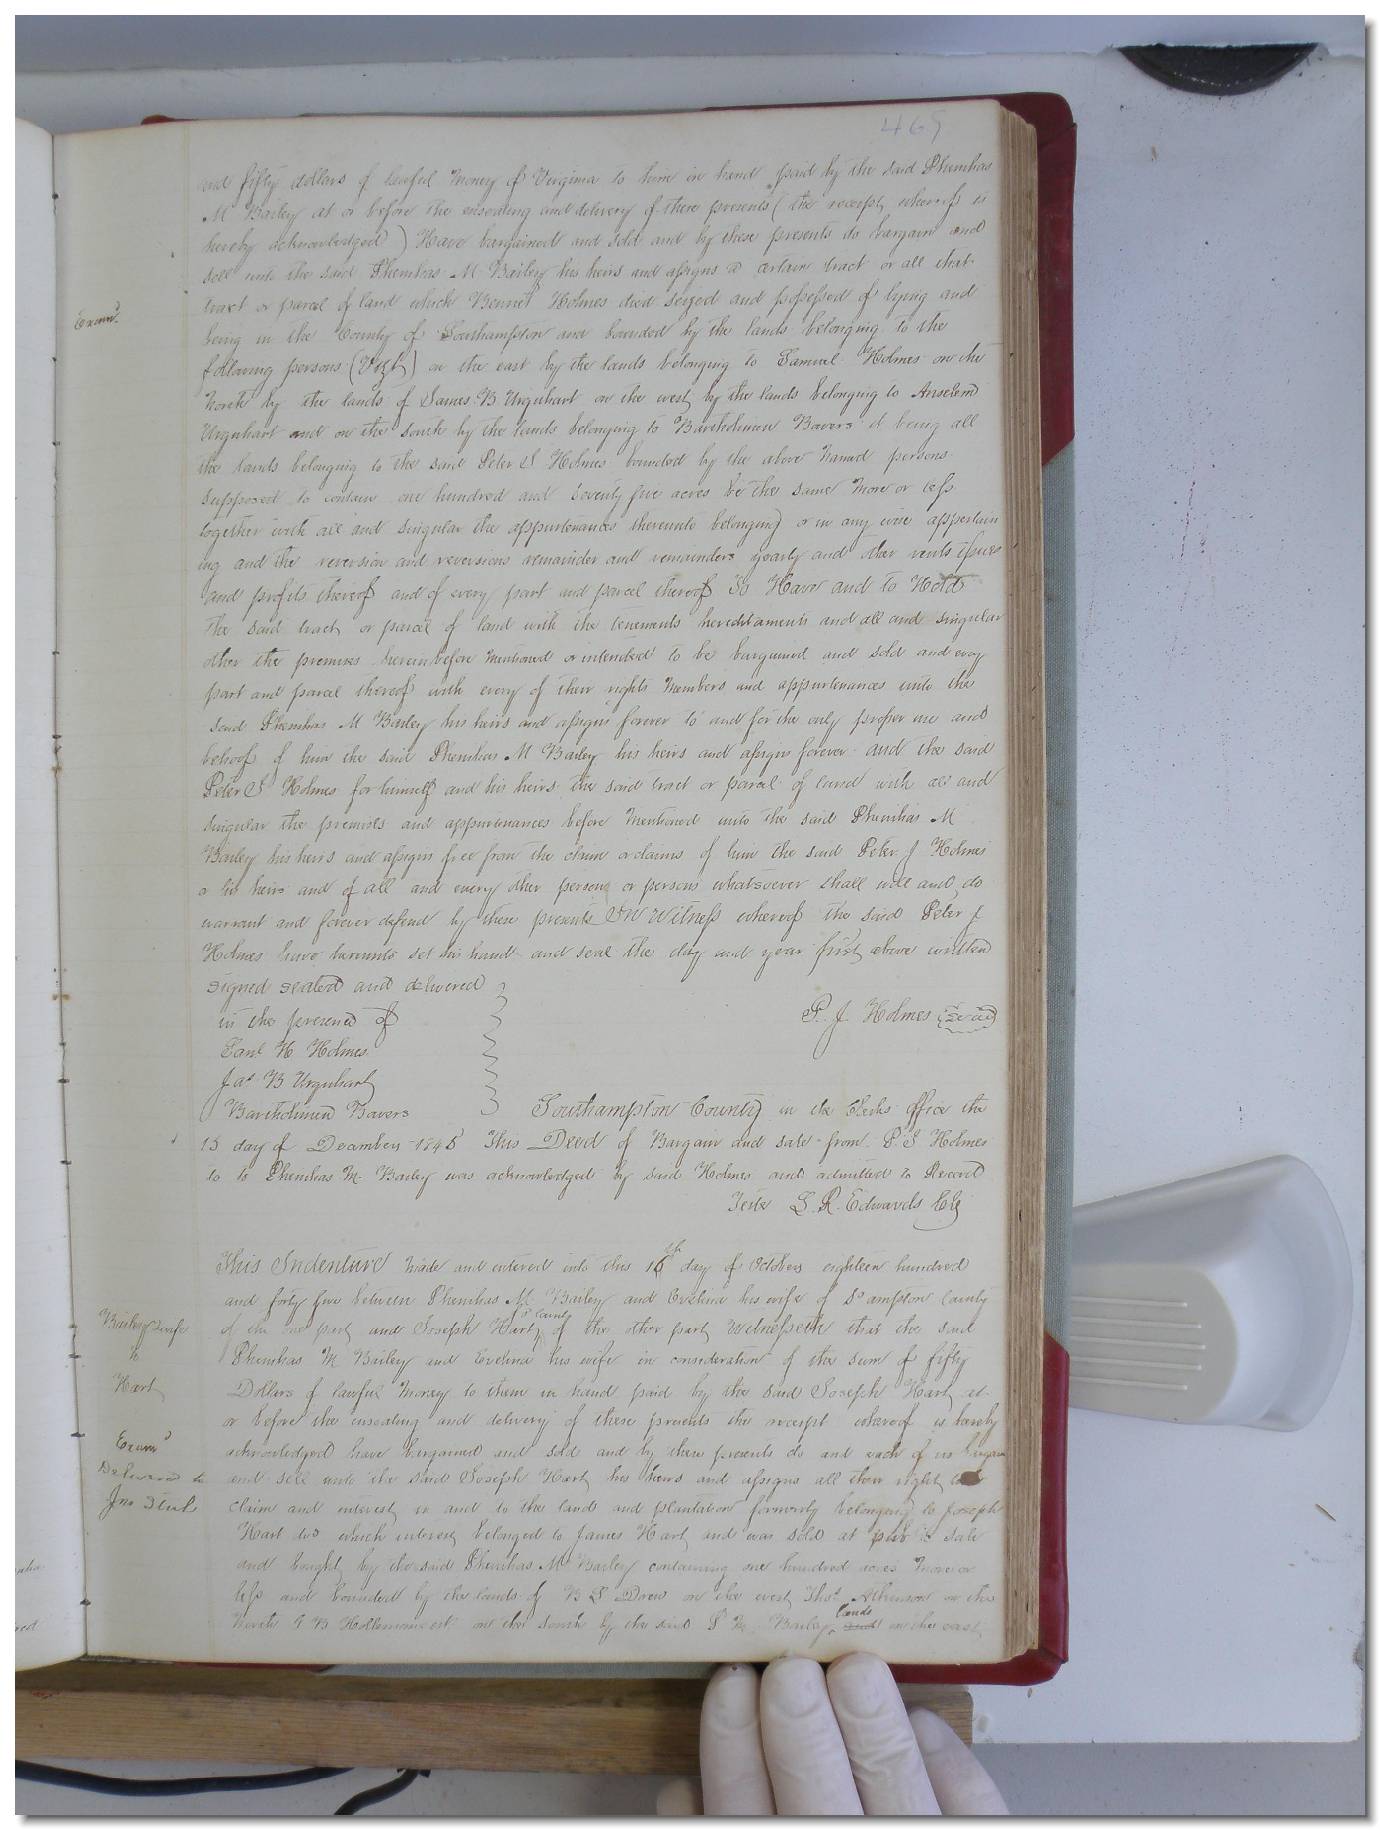 469
and fifty dollars of lawful money of Virginia to him in hand paid by the said Phenihas
M Bailey at or before the ensealing and delivery of these presents (the receipt whereof is
hereby acknowledged) Have bargained and sold and by these presents do bargain and
sell unto the said Phenihas M Bailey his heirs and assigns a certain tract or all that
tract or parcel of land which Bennet Holmes died seized and possessed of lying and
Examd
being in the County of Southampton and bounded by the lands belonging to the
following persons (Vizt) on the east by the lands belonging to Samuel Holmes on the
North by the lands of James B Urquhart on the west by the lands belonging to Anselem
Urquhart and on the south by the lands belonging to Bartholimew Bowers it being all
the lands belonging to the said Peter J Holmes bounded by the above named persons
supposed to contain one hundred and seventy five acres be the same more or less
together with all and singular the appurtenances thereunto belonging or in any wise appertain
ing and the reversion and reversions remainder and remainders yearly and other rents issues
and profits thereof and of every part and parcel thereof To Have and to Hold
the said tract or parcel of land with the tenements hereditaments and all and singular
other the premises herein before mentioned or intended to be bargained and sold and every
part and parcel thereof with every of their rights members and appurtenances unto the
said Phenihas M Bailey his heirs and assigns forever to and for the only proper use and
behoof of him the said Phenihas M Bailey his heirs and assigns forever and the said
Peter J Holmes for himself and his heirs the said tract or parcel of land with all and
singular the premises and appurtenances before mentioned unto the said Phenihas M
Bailey his heirs and assigns free from the claim or claims of him the said Peter J Holmes
or his heirs and of all and every other person or persons whatsoever shall will and do
warrant and forever defend by these presents In Witness whereof the said Peter J
Holmes have hereunto set his hand and seal the day and year first above written
signed sealed and delivered
in the presence of
P. J. Holmes {Seal}
Saml H Holmes
Jas B Urquhart
Bartholimew Bowers Southampton County in the Clerks office the
15 day of December 1845 This Deed of Bargain and sale from P. J Holmes
to to Phenihas M. Bailey was acknowledged by said Holmes and admitted to Record
Teste L. R. Edwards Clk
This Indenture made and entered into this 16th day of October eighteen hundred
and forty five between Phenihas M Bailey and Evelina his wife of So ampton County
Bailey & wife
to
Hart
of the one part and Joseph Hart of sd County of the other part Witnesseth that the said
Phenihas M Bailey and Evelina his wife in consideration of the sum of fifty
Dollars of lawful money to them in hand paid by the said Joseph Hart at
or before the ensealing and delivery of these presents the receipt whereof is hereby
Examd
Delivered to
acknowledged have bargained and sold and by these presents do and each of us bargain
and sell unto the said Joseph Hart his heirs and assigns all their right
claim and interest in and to the land and plantation formerly belonging to Joseph
Hart which interest belonged to James Hart and was sold at public sale
and bought by the said Phenihas M Bailey containing one hundred acres more or
less and bounded by the lands of Drew on the west Thos. Atkinson on the
North on the south by the said P M Bailey lands on the east